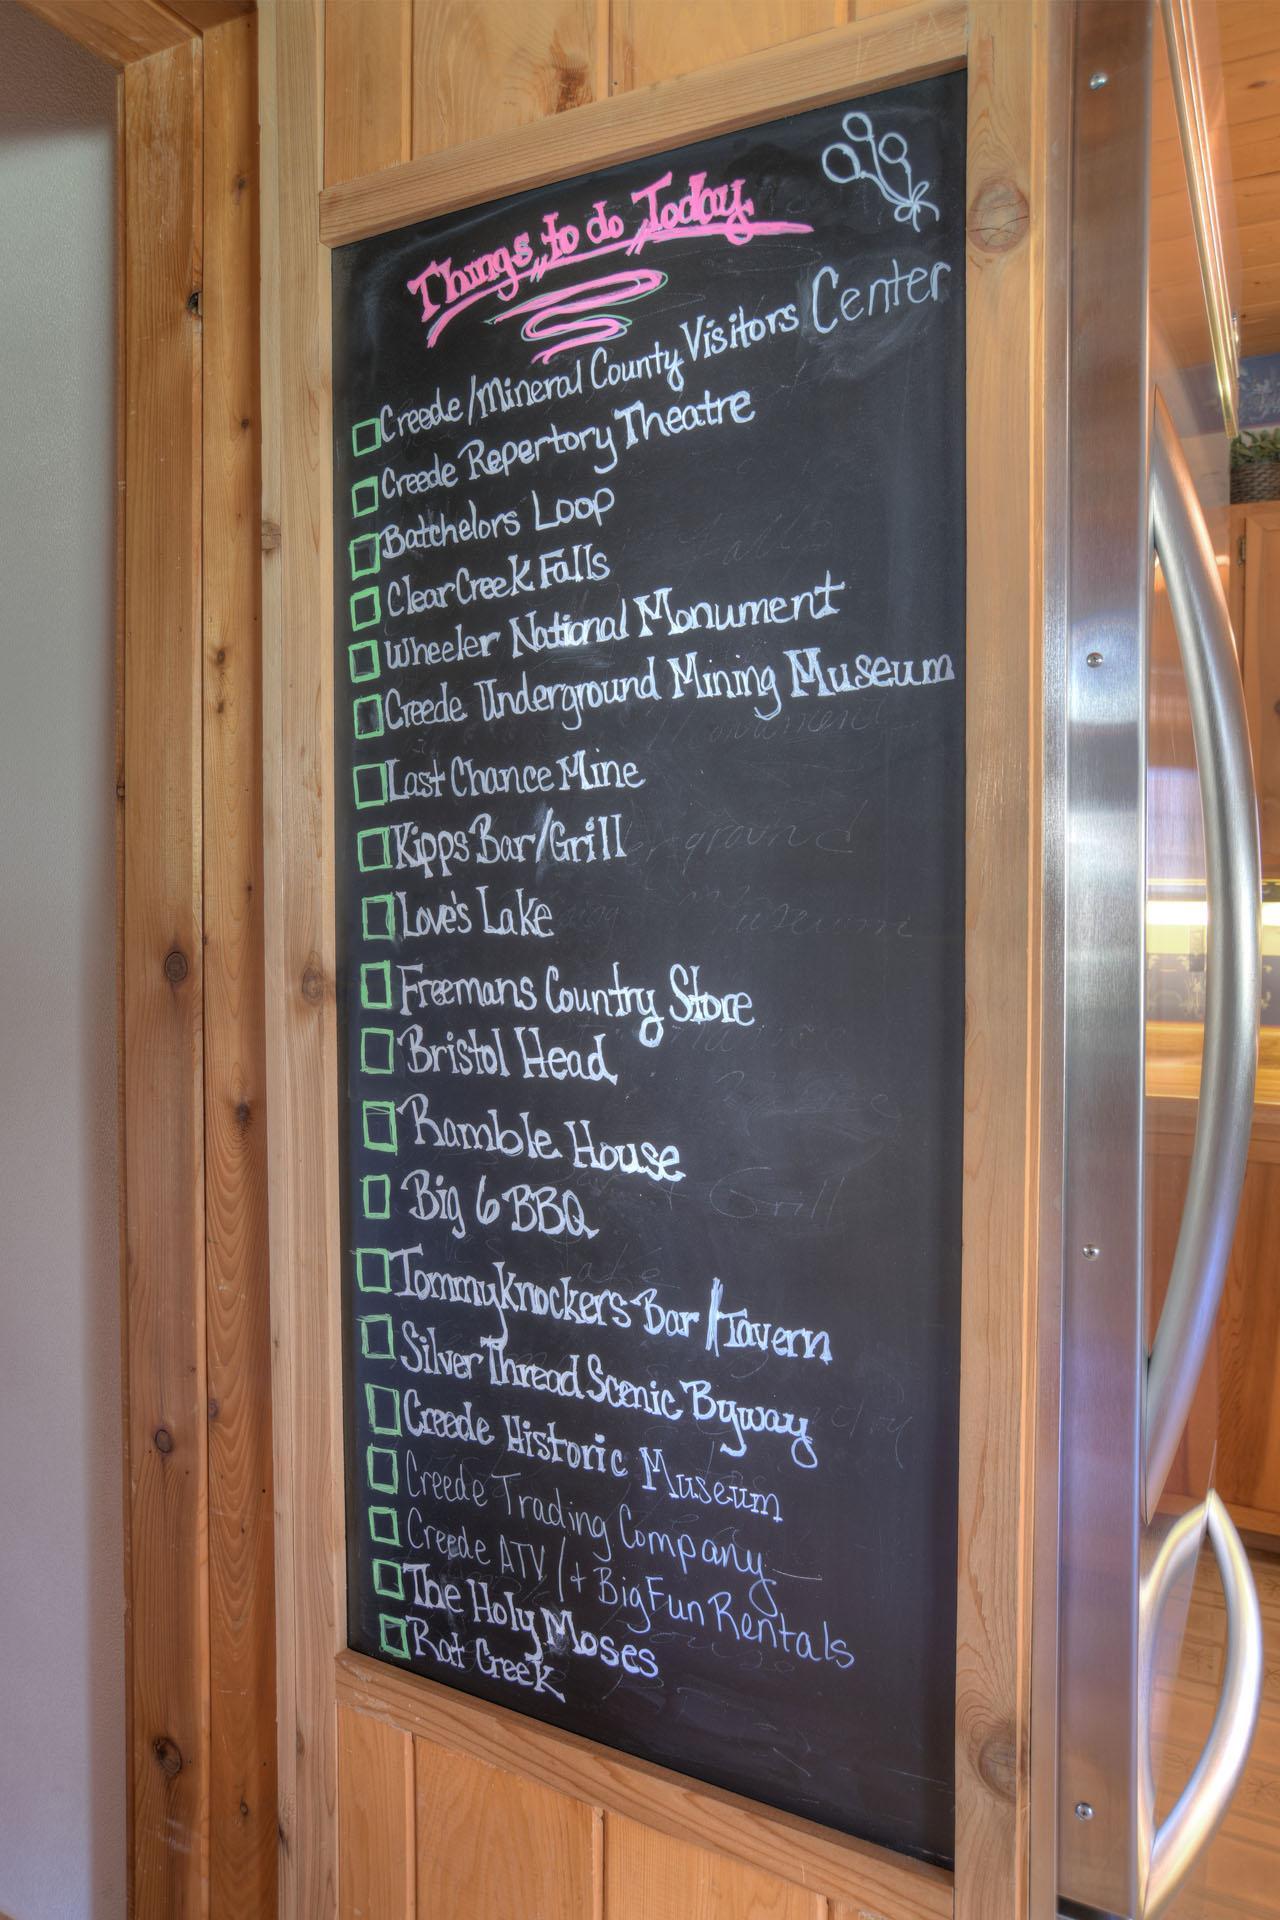 Things to do Today
Creede/Mineral County Visitors Center
Creede Repertory Theatre
Batchelors Loop
Clear Creek Falls
Wheeler National Monument
Creede Underground Mining Museum
Last Chance Mine
Kipps Bar/Grill
Love's Lake
Freemans Country Store
Bristol Head
Ramble House
Big 6 BBQ
Tommyknockers Bar/Tavern
Silver Thread Scenic Byway
Creede Historic Museum
Creede Trading Company
Creede ATV/+ Big Fun Rentals
The Holy Moses
Rat Creek